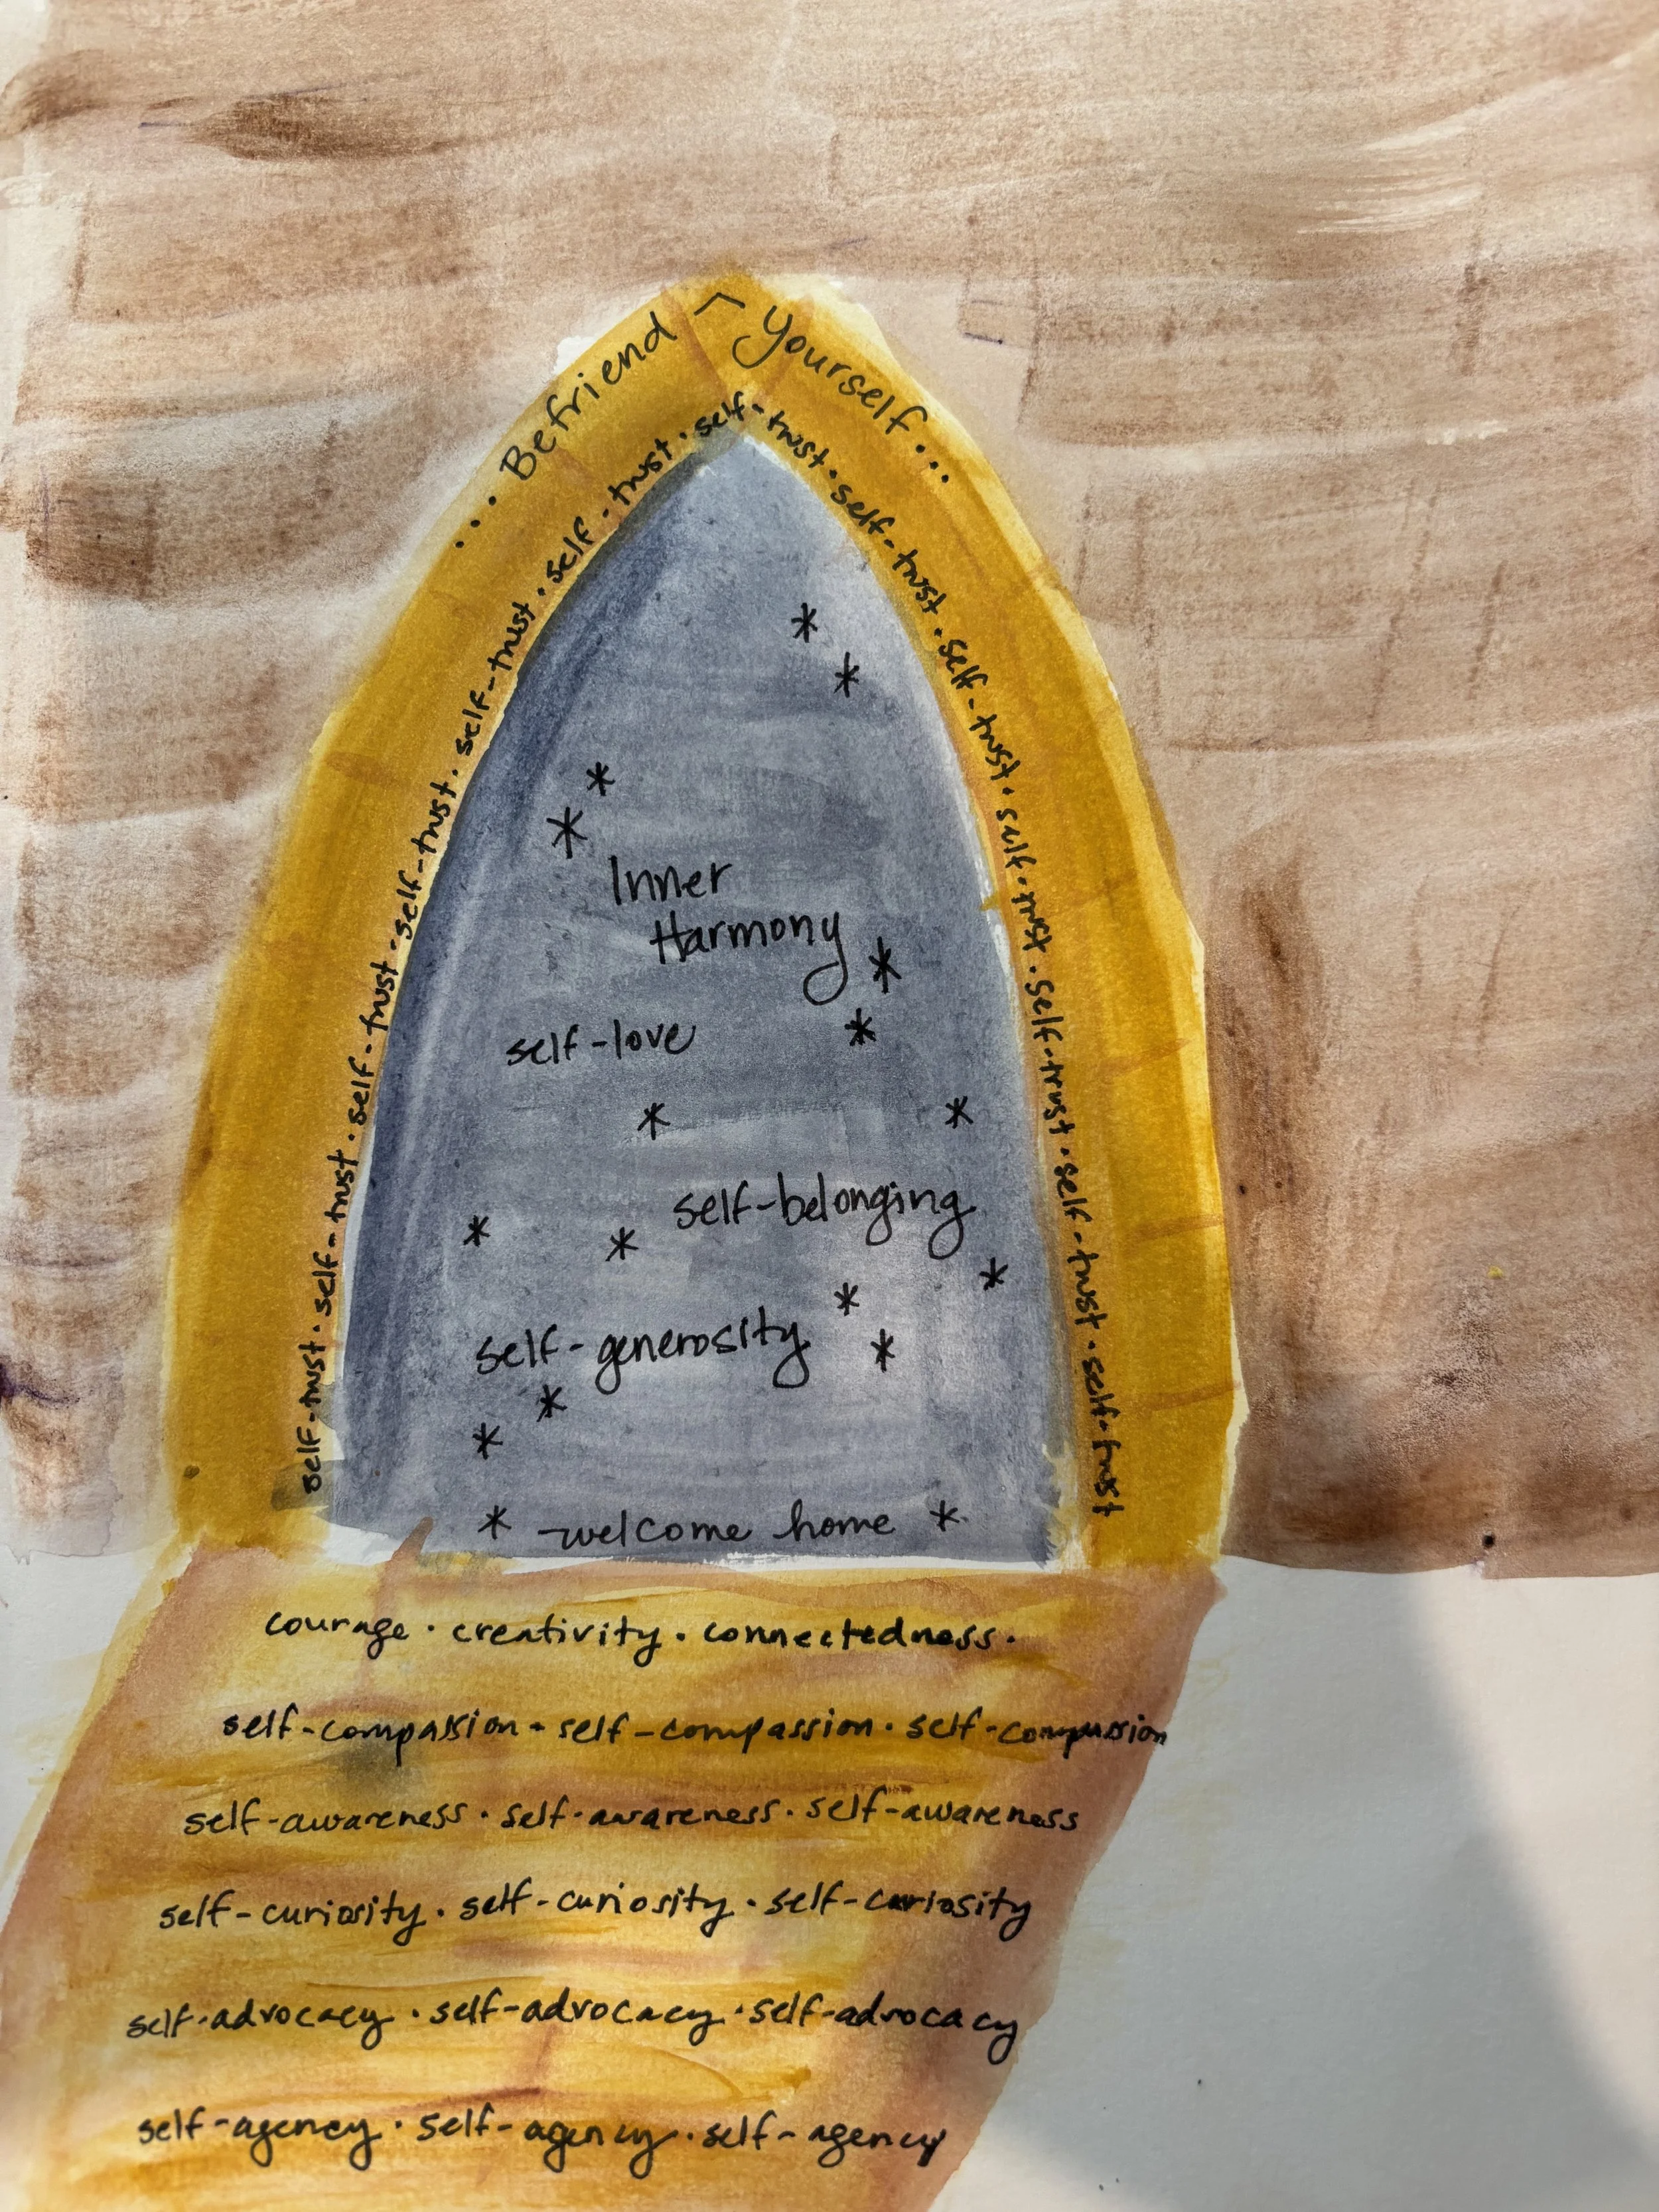 ... Befriend ^ Yourself ...
self-trust · self-trust · self-trust · self-trust · self-trust · self-trust · self-trust · self-trust · self-trust · self-trust · self-trust · self-trust · self-trust
Inner
Harmony
self-love
self-belonging
self-generosity
* welcome home *
courage · creativity · connectedness ·
self-compassion · self-compassion · self-compassion
self-awareness · self-awareness · self-awareness
self-curiosity · self-curiosity · self-curiosity
self-advocacy · self-advocacy · self-advocacy
self-agency · self-agency · self-agency